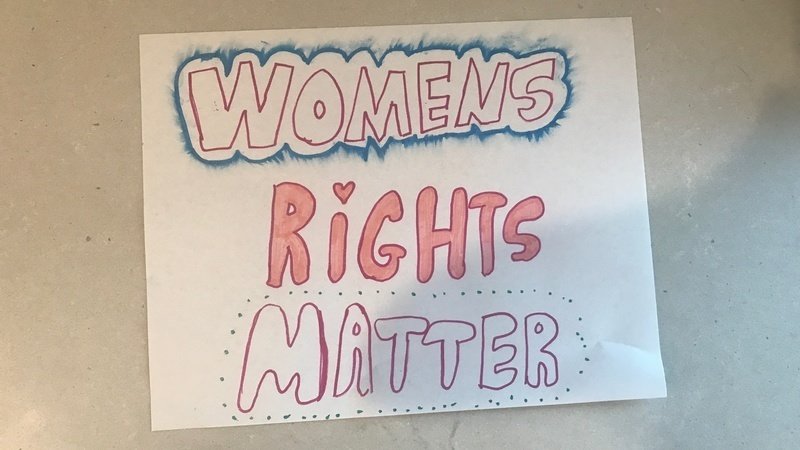 WOMENS
RiGHTS
MATTER